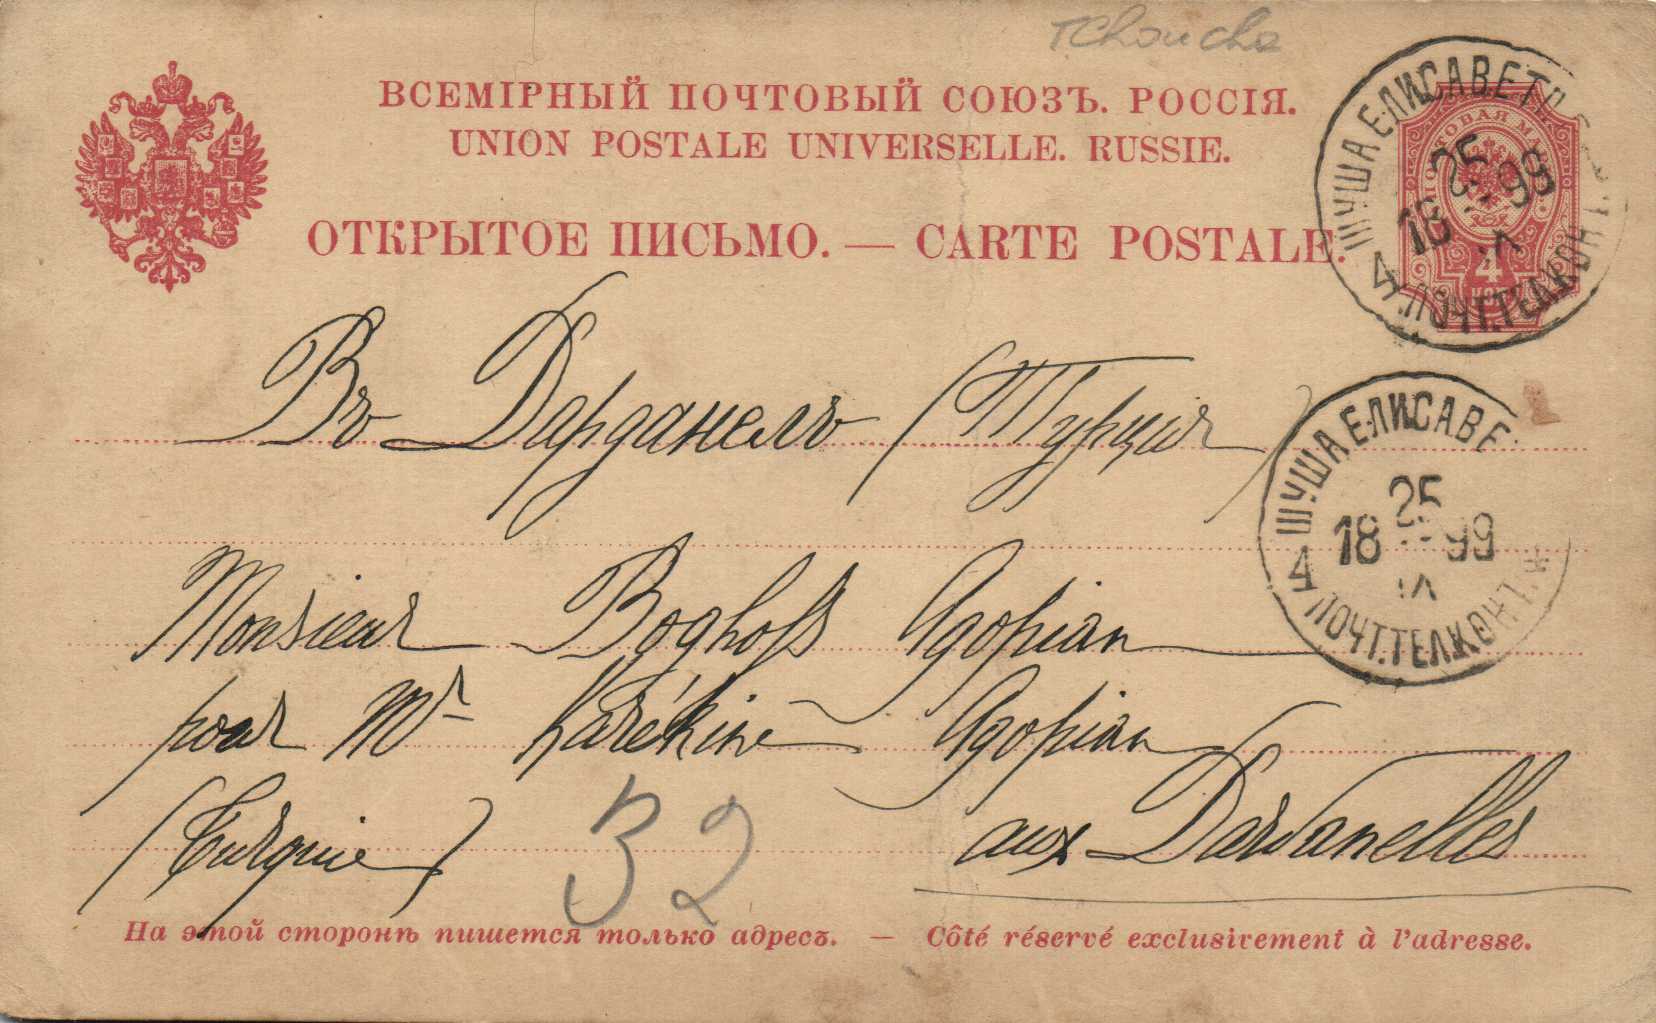 Tchoucha
ВСЕМІРНЫЙ ПОЧТОВЫЙ СОЮЗЪ. РОССІЯ.
UNION POSTALE UNIVERSELLE. RUSSIE.
ОТКРЫТОЕ ПИСЬМО. — CARTE POSTALE.
ПОЧТОВАЯ МАРКА
4
КОП
ШУША ЕЛИСАВЕТП.
25
18 99
IX
4 ПОЧТ.ТЕЛ.КОНТ.
Въ Дарданелъ (Турція)
ШУША ЕЛИСАВЕ
25
18 99
IX
4 ПОЧТ.ТЕЛ.КОНТ. *
Monsieur Boghoss Agopian
pour Mr Karékine Agopian
(Turquie) aux Dardanelles
32
На этой сторонѣ пишется только адресъ. — Côté réservé exclusivement à l'adresse.